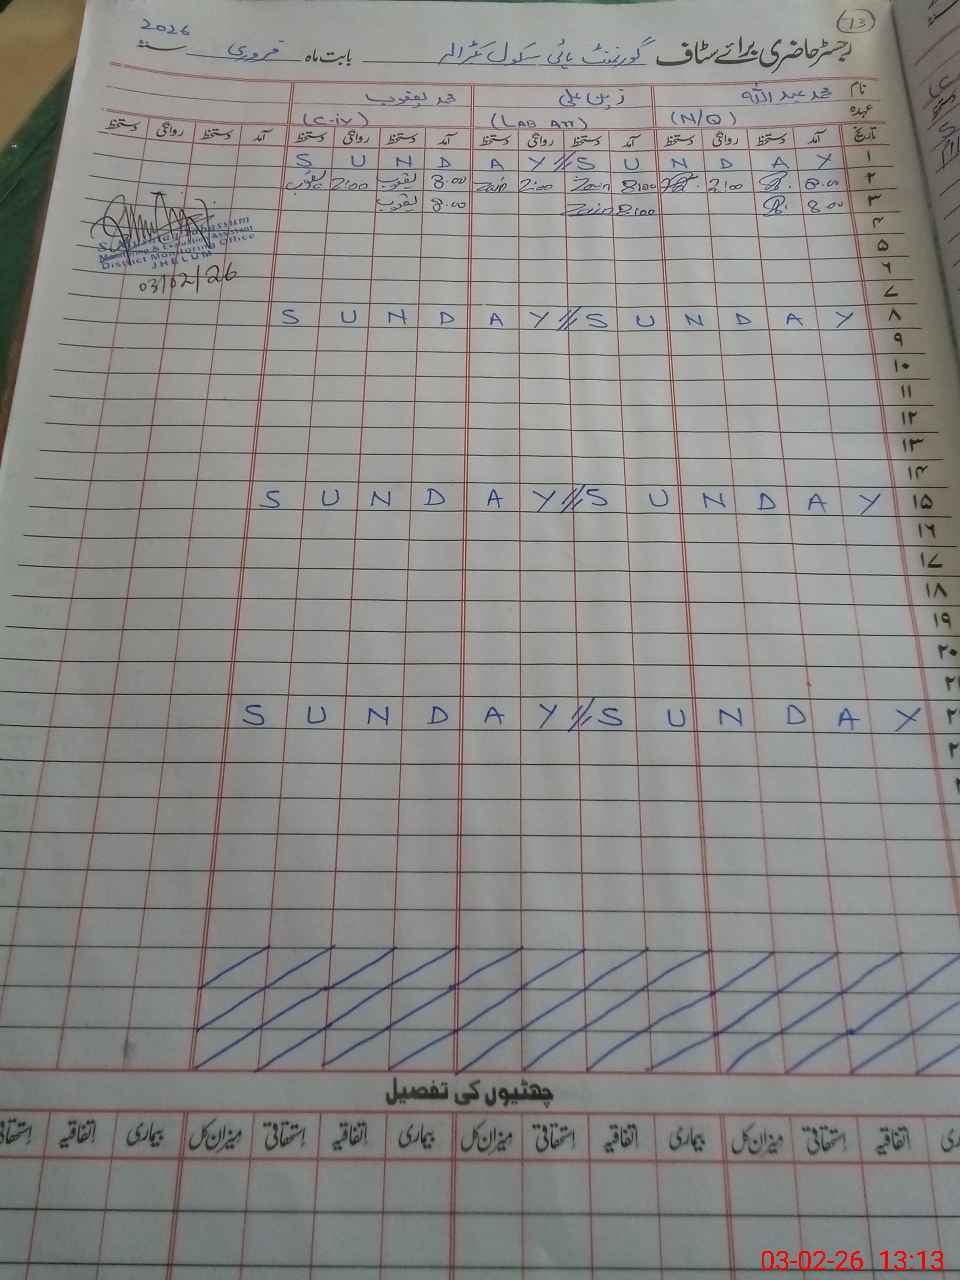 13
رجسٹر حاضری برائے سٹاف گورنمنٹ ہائی سکول بابت ماہ فروری سنہ 2026
نام محمد عبداللہ زین علی محمد یعقوب
عہدہ (N/Q) (LAB ATT) (C-iv)
تاریخ آمد دستخط روانگی دستخط آمد دستخط روانگی دستخط آمد دستخط روانگی دستخط آمد دستخط روانگی دستخط
۱ S U N D A Y // S U N D A Y
۲ 8.00 2:00 8:00 Zain 2:00 Zain 8.00 یعقوب 2:00 یعقوب
۳ 8.00 8:00 Zain 8.00 یعقوب
۴
۵
۶
۷
۸ S U N D A Y // S U N D A Y
۹
۱۰
۱۱
۱۲
۱۳
۱۴
۱۵ S U N D A Y // S U N D A Y
۱۶
۱۷
۱۸
۱۹
۲۰
S U N D A Y // S U N D A Y
Monitoring & Evaluation Assistant
District Monitoring Office
JHELUM
03/02/26
چھٹیوں کی تفصیل
اتفاقیہ استحقاقی میزان کل بیماری اتفاقیہ استحقاقی میزان کل بیماری اتفاقیہ استحقاقی میزان کل بیماری اتفاقیہ
03-02-26 13:13